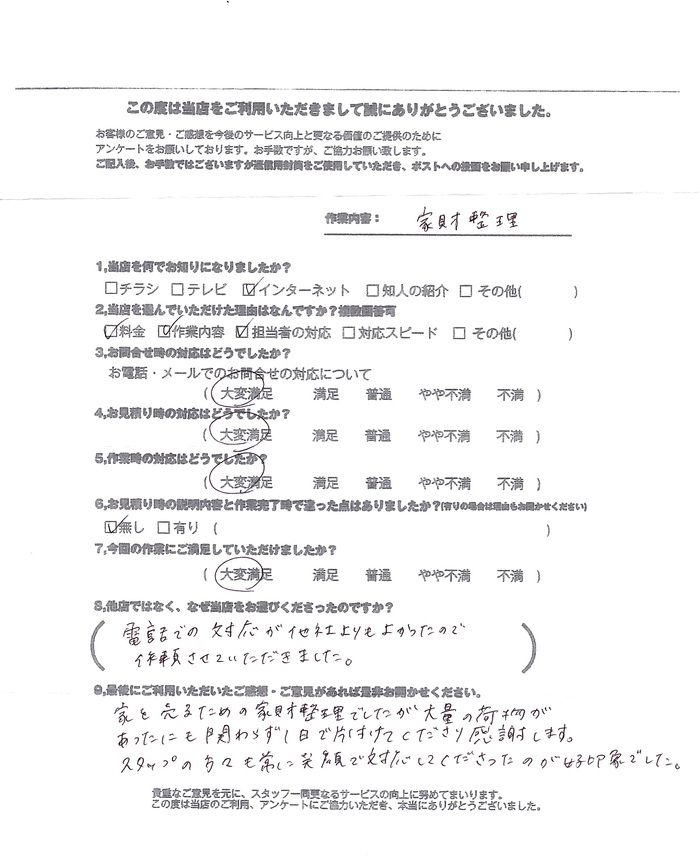 この度は当店をご利用いただきまして誠にありがとうございました。
お客様のご意見・ご感想を今後のサービス向上と更なる価値のご提供のために
アンケートをお願いしております。お手数ですが、ご協力お願い致します。
ご記入後、お手数ではございますが返信用封筒をご使用していただき、ポストへの投函をお願い申し上げます。
作業内容： 家財整理
1,当店を何でお知りになりましたか？
□チラシ □テレビ ☑インターネット □知人の紹介 □ その他( )
2,当店を選んでいただけた理由はなんですか？複数回答可
☑料金 ☑作業内容 ☑担当者の対応 □対応スピード □ その他( )
3,お問合せ時の対応はどうでしたか？
お電話・メールでのお問合せの対応について
( 大変満足 満足 普通 やや不満 不満 )
4,お見積り時の対応はどうでしたか？
( 大変満足 満足 普通 やや不満 不満 )
5,作業時の対応はどうでしたか？
( 大変満足 満足 普通 やや不満 不満 )
6,お見積り時の説明内容と作業完了時で違った点はありましたか？(有りの場合は理由もお聞かせください)
☑無し □有り ( )
7,今回の作業にご満足していただけましたか？
( 大変満足 満足 普通 やや不満 不満 )
8,他店ではなく、なぜ当店をお選びくださったのですか？
(電話での対応が他社よりもよかったので
依頼させていただきました。)
9,最後にご利用いただいたご感想・ご意見があれば是非お聞かせください。
家を売るための家財整理でしたが大量の荷物が
あったにも関わらず1日で片付けてくださり感謝します。
スタップの方々も常に笑顔で対応してくださったのが好印象でした。
貴重なご意見を元に、スタッフ一同更なるサービスの向上に努めてまいります。
この度は当店のご利用、アンケートにご協力いただき、本当にありがとうございました。